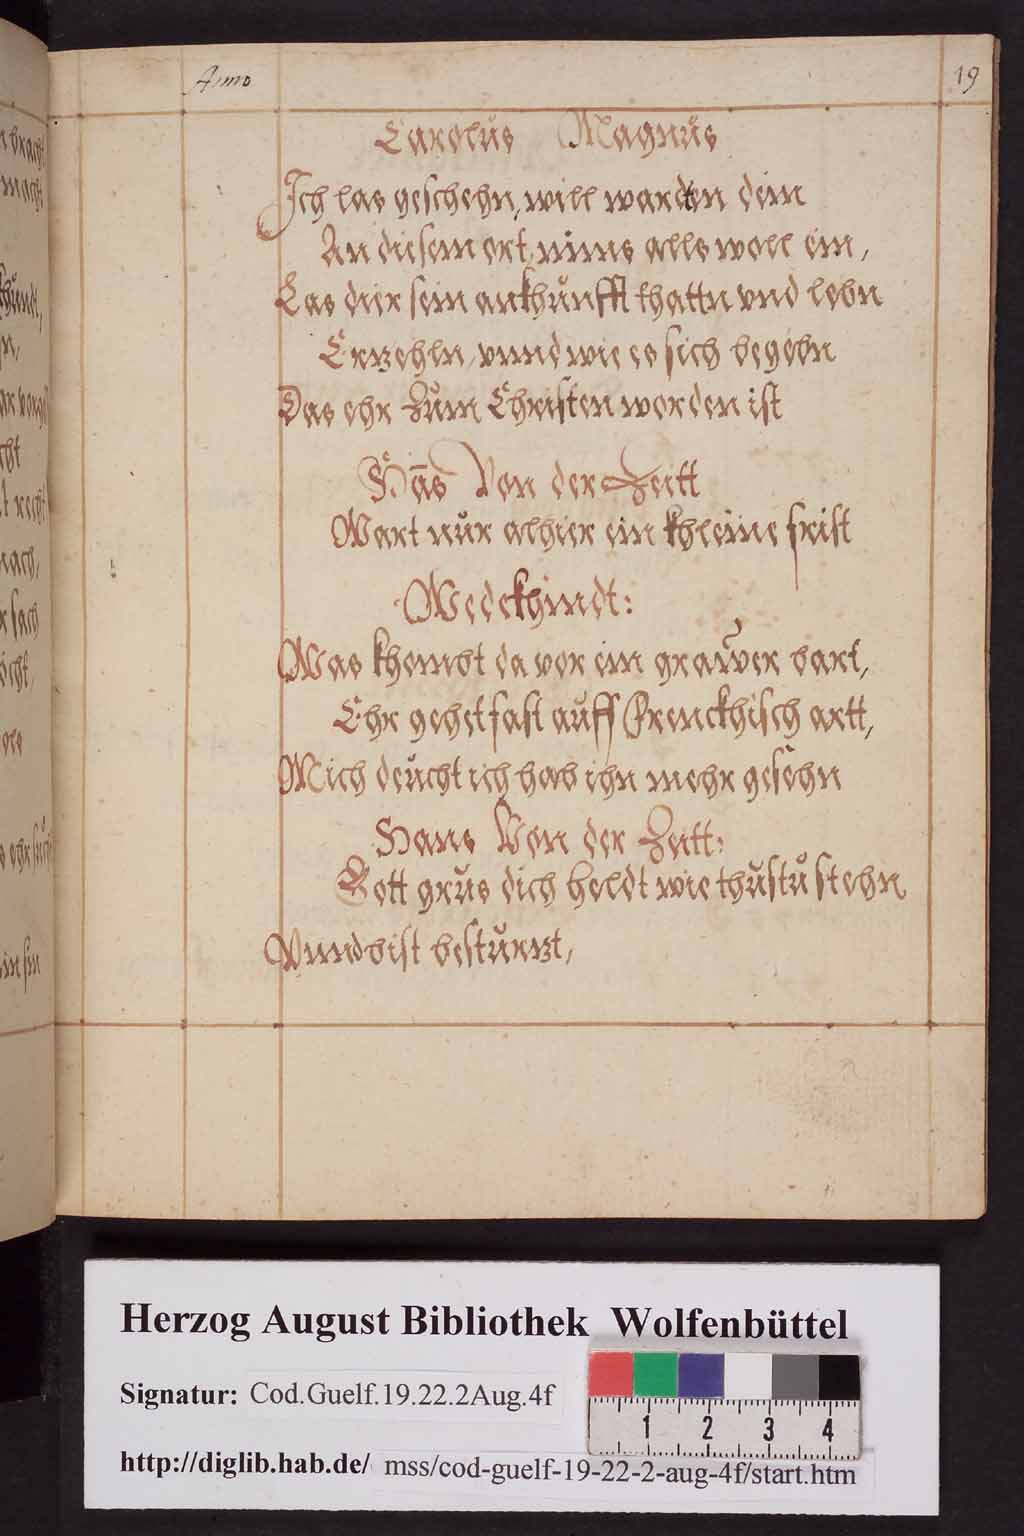 Anno
19
Carolus Magnus
Ich las geschehn, will warden dein
An diesem ort, nims alls woll ein,
Las dier sein ankhunfft thattn vnd lebn
Erzehln, vnnd wie es sich begebn
Das ehr Zum Christen worden ist
Hãs Von der Zeitt
Wart nur alhier ein khleine frist
Wedekhindt:
Was khombt da vor ein grawer bart,
Ehr gehet fast auff Frenckhisch artt,
Mich deucht ich hab ihn mehr gesehn
Hans Von der Zeitt:
Gott grus dich heldt wie thustu stehn
Vnnd bist besturzt,
Herzog August Bibliothek Wolfenbüttel
Signatur: Cod.Guelf.19.22.2Aug.4f
1 2 3 4
http://diglib.hab.de/ mss/cod-guelf-19-22-2-aug-4f/start.htm